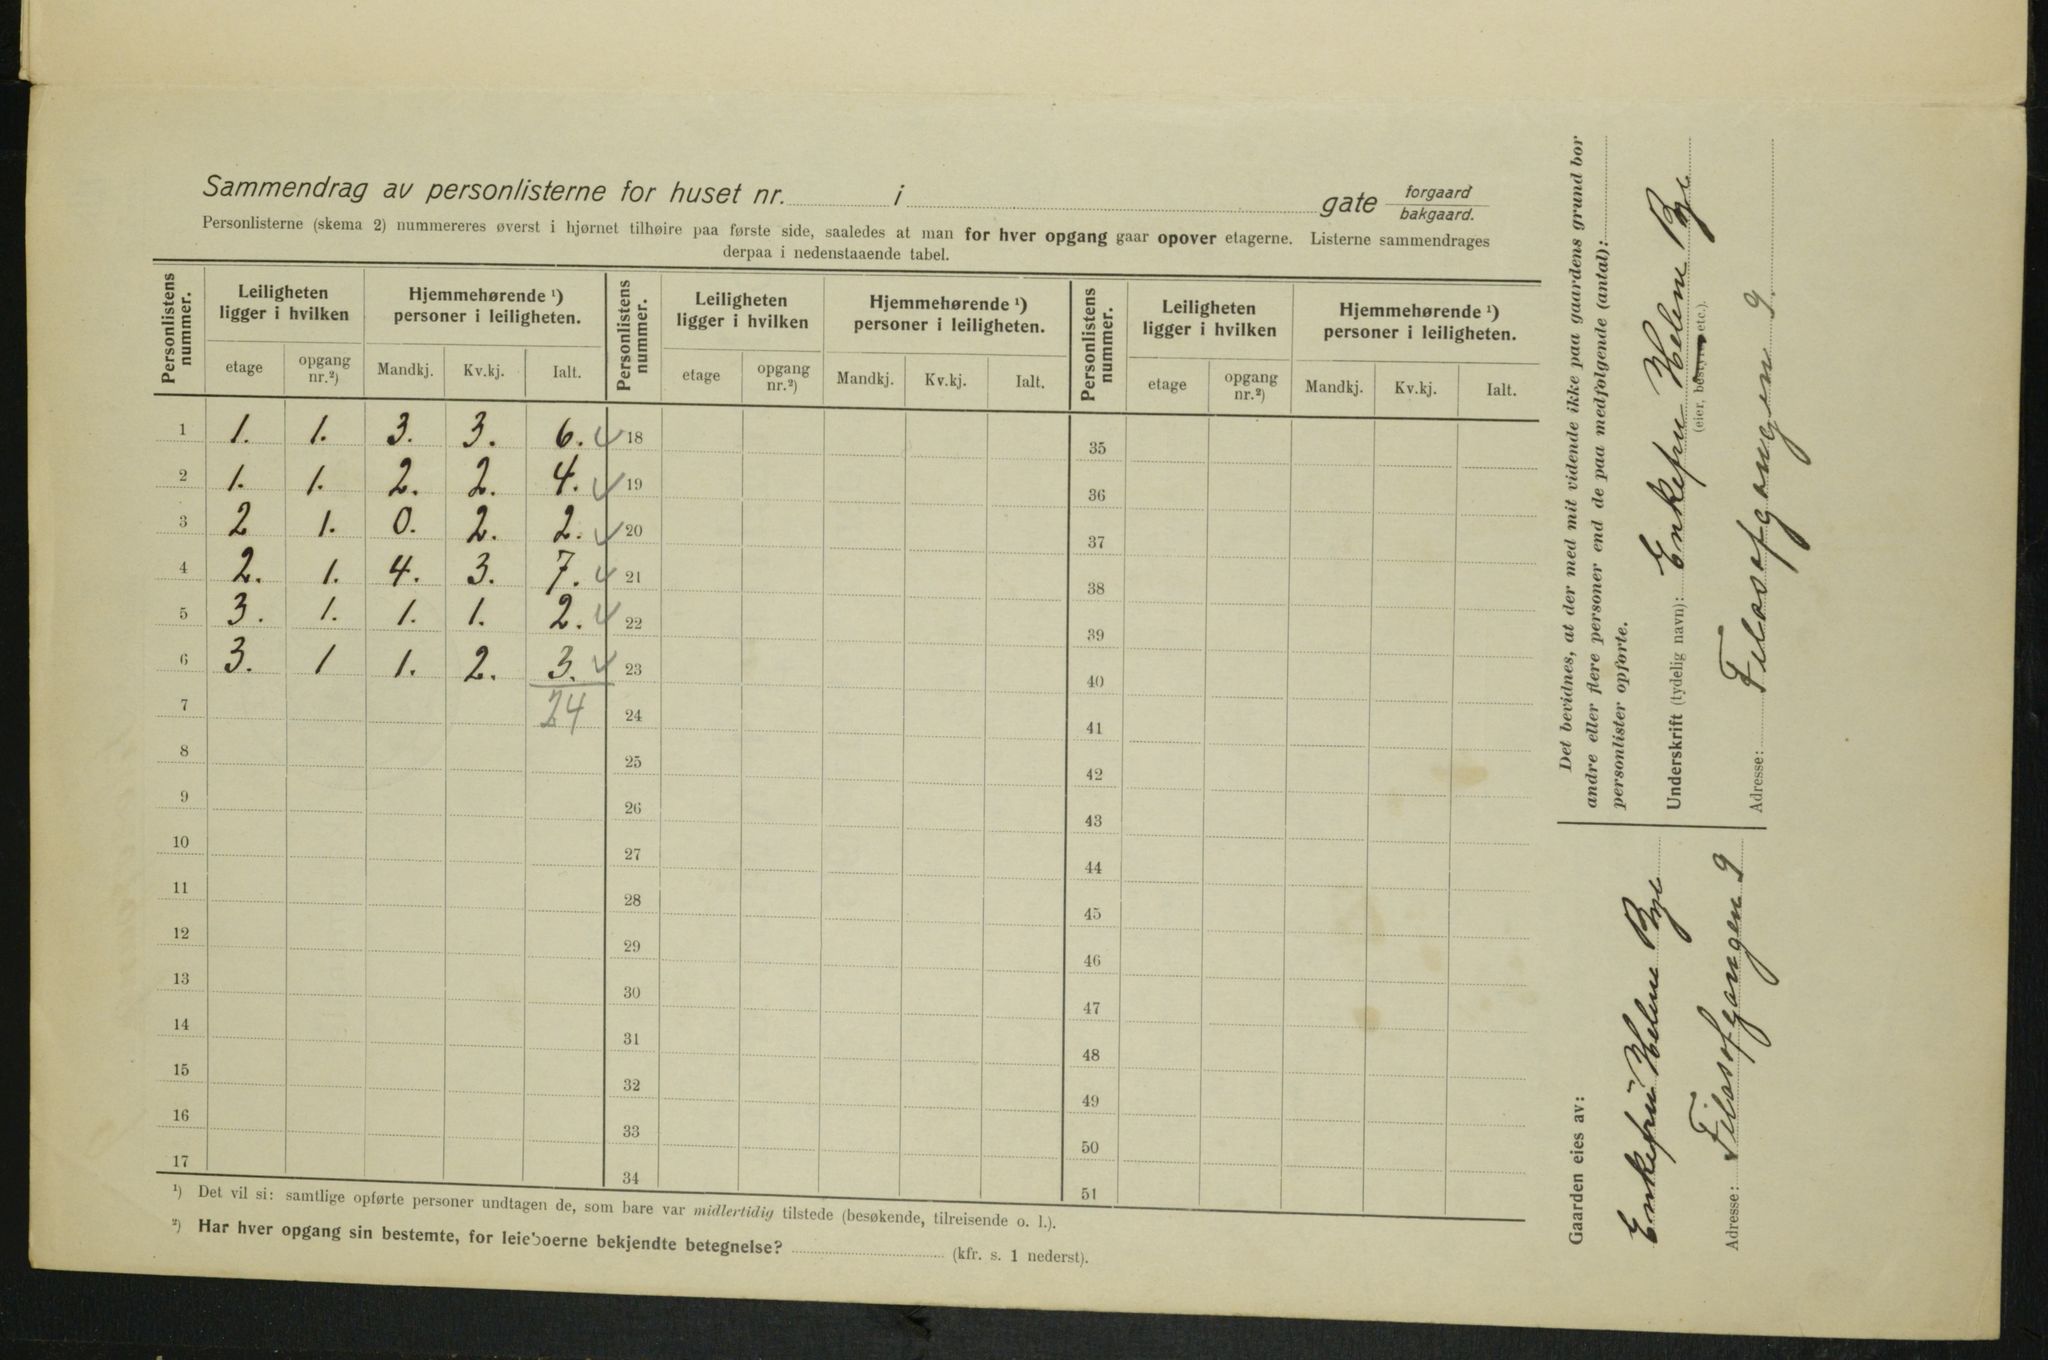 Sammendrag av personlisterne for huset nr. i gate forgaard bakgaard.
Personlisterne (skema 2) nummereres øverst i hjørnet tilhøire paa første side, saaledes at man for hver opgang gaar opover etagerne. Listerne sammendrages
derpaa i nedenstaaende tabel.
Personlistens nummer. Leiligheten ligger i hvilken Hjemmehørende ¹) personer i leiligheten. Personlistens nummer. Leiligheten ligger i hvilken Hjemmehørende ¹) personer i leiligheten. Personlistens nummer. Leiligheten ligger i hvilken Hjemmehørende ¹) personer i leiligheten.
etage opgang nr.²) Mandkj. Kv.kj. Ialt. etage opgang nr.²) Mandkj. Kv.kj. Ialt. etage opgang nr.²) Mandkj. Kv.kj. Ialt.
1 1. 1. 3. 3. 6. 18 35
2 1. 1. 2. 2. 4. 19 36
3 2 1. 0. 2. 2. 20 37
4 2. 1. 4. 3. 7. 21 38
5 3. 1. 1. 1. 2. 22 39
6 3. 1 1. 2. 3. 23 40
7 24 24 41
8 25 42
9 26 43
10 27 44
11 28 45
12 29 46
13 30 47
14 31 48
15 32 49
16 33 50
17 34 51
¹) Det vil si: samtlige opførte personer undtagen de, som bare var midlertidig tilstede (besøkende, tilreisende o. l.).
²) Har hver opgang sin bestemte, for leieboerne bekjendte betegnelse? (kfr. s. 1 nederst).
Gaarden eies av:
Enkefru Helene Bye
Adresse: Filosofgangen 9
Det bevidnes, at der med mit vidende ikke paa gaardens grund bor
andre eller flere personer end de paa medfølgende (antal):
personlister opførte.
Underskrift (tydelig navn): Enkefru Helene Bye
(eier, bestyrer etc.).
Adresse: Filosofgangen 9.